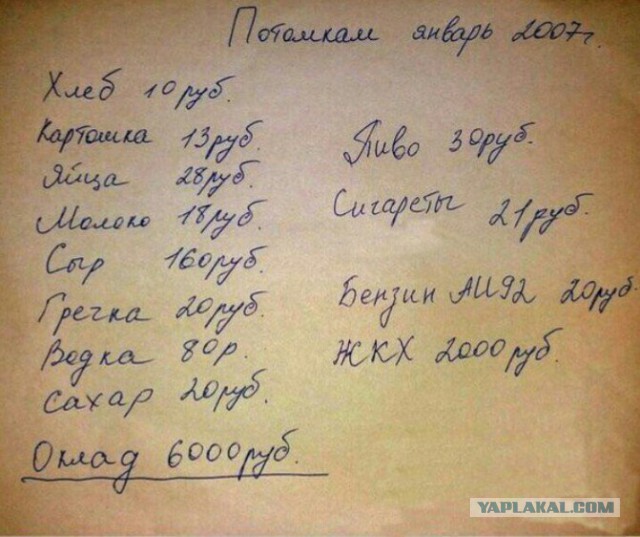 Потомкам январь 2007г.
Хлеб 10руб.
Картошка 13руб.
Яйца 28руб.
Молоко 18руб.
Сыр 160руб.
Гречка 20руб.
Водка 80р.
Сахар 20руб.
Пиво 30руб.
Сигареты 21руб.
Бензин АИ92 20руб.
ЖКХ 2000руб.
Оклад 6000руб.
YAPLAKAL.COM